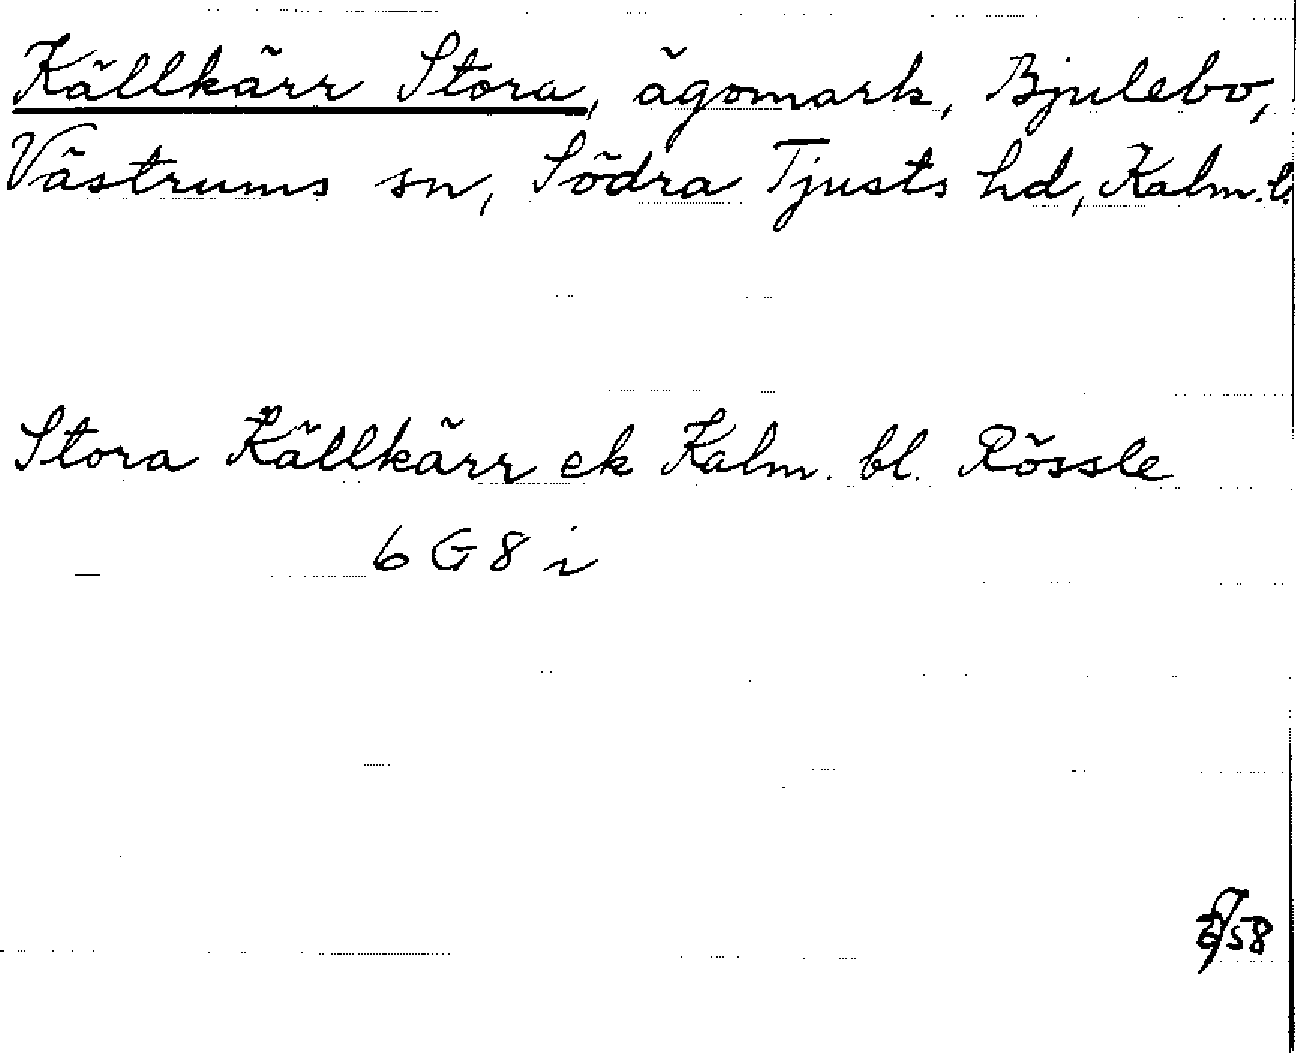 Källkärr Stora, ägomark, Bjulebo,
Västrums sn, Södra Tjusts hd, Kalm. l.
Stora Källkärr ek Kalm. bl. Rössle
6 G 8 i